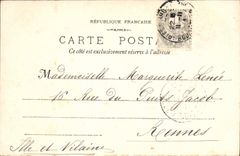 RÉPUBLIQUE FRANÇAISE
CARTE POSTALE
Ce côté est exclusivement réservé à l'adresse
Mademoiselle Marguerite
15 Rue du Puits Jacob
Rennes
Ille et Vilaine